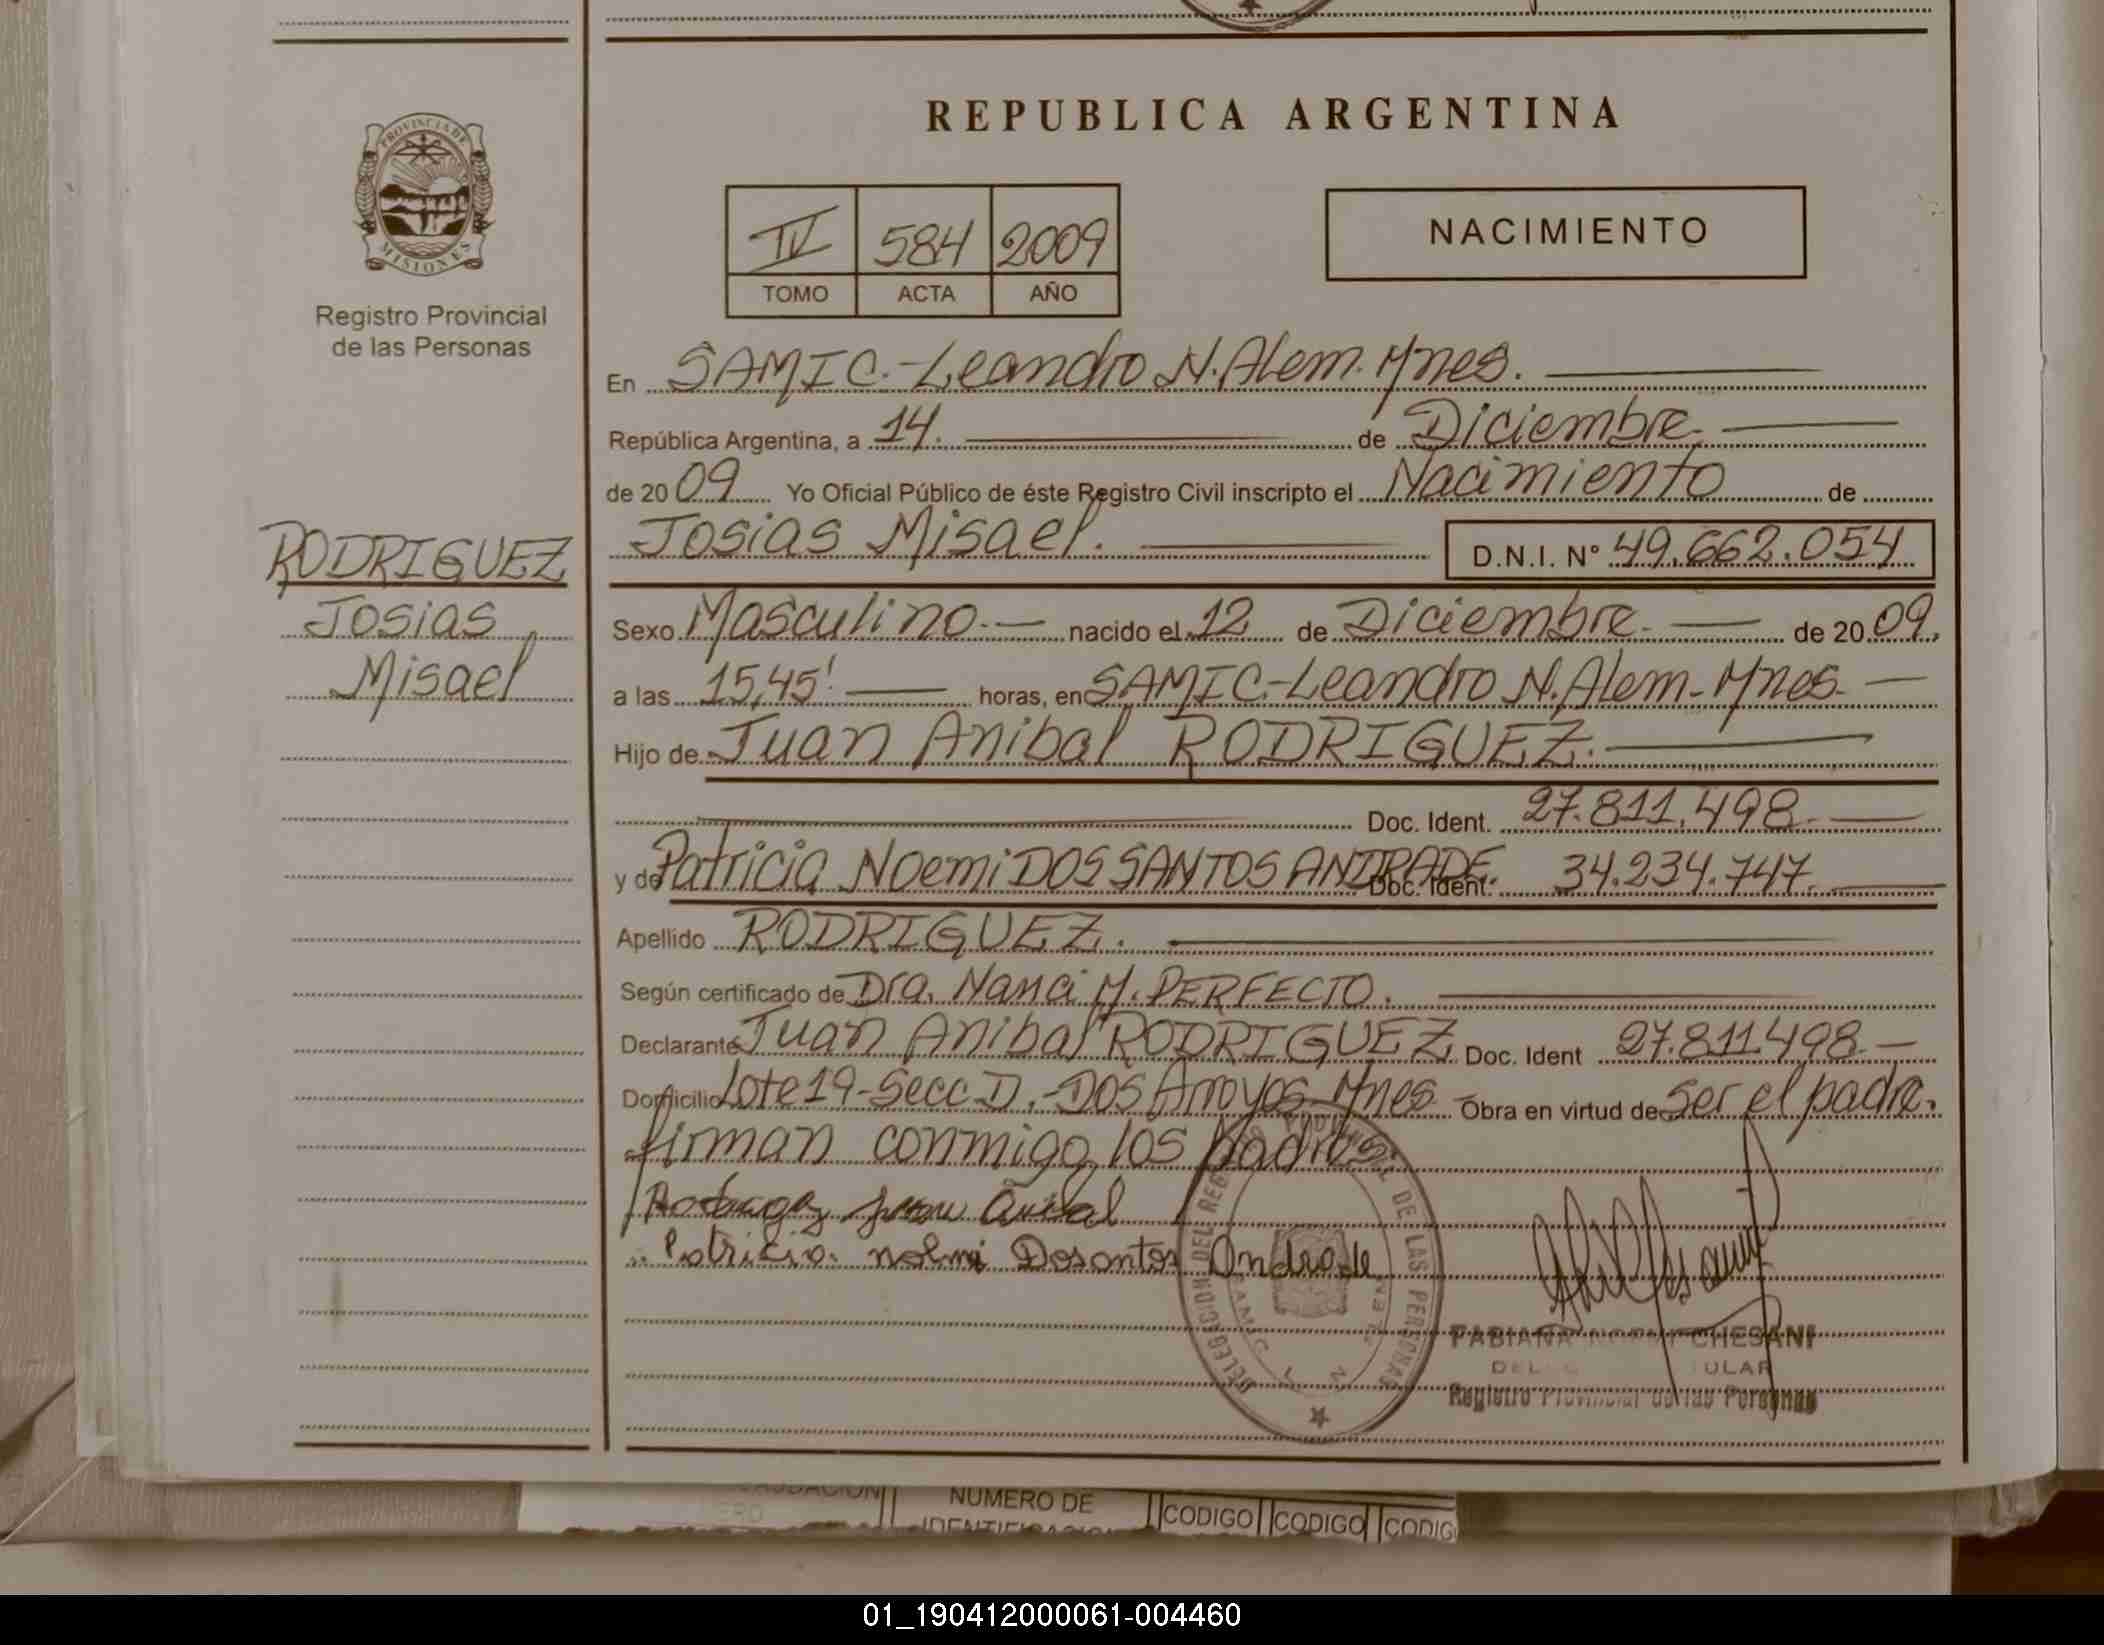 REPUBLICA ARGENTINA
PROVINCIA DE
MISIONES
Registro Provincial
de las Personas
IV 584 2009
TOMO ACTA AÑO
NACIMIENTO
En SAMIC.-Leandro N. Alem. Mnes.
República Argentina, a 14. de Diciembre.
de 2009 Yo Oficial Público de éste Registro Civil inscripto el Nacimiento de
Josias Misael. D.N.I. N° 49.662.054
RODRIGUEZ
Josias
Misael
Sexo Masculino.- nacido el 12 de Diciembre. de 2009.
a las 15,45' horas, en SAMIC.-Leandro N. Alem.-Mnes.
Hijo de Juan Anibal RODRIGUEZ.
Doc. Ident. 27.811.498.
y de Patricia Noemi DOS SANTOS ANDRADE. Doc. Ident. 34.234.747.
Apellido RODRIGUEZ.
Según certificado de Dra. Nanci M. PERFECTO.
Declarante Juan Anibal RODRIGUEZ. Doc. Ident 27.811.498.
Domicilio Lote 19-Secc D.-Dos Arroyos-Mnes Obra en virtud de Ser el padre.
firman conmigo los padres.
Rodriguez Juan Anibal
Patricia noemi Dosantos Andrade
DELEGACION DEL REGISTRO PROVINCIAL DE LAS PERSONAS
SAMIC L N ALEM
FABIANA CHESANI
Registro Provincial de las Personas
NUMERO DE
IDENTIFICACION
CODIGO CODIGO CODIG
01_190412000061-004460